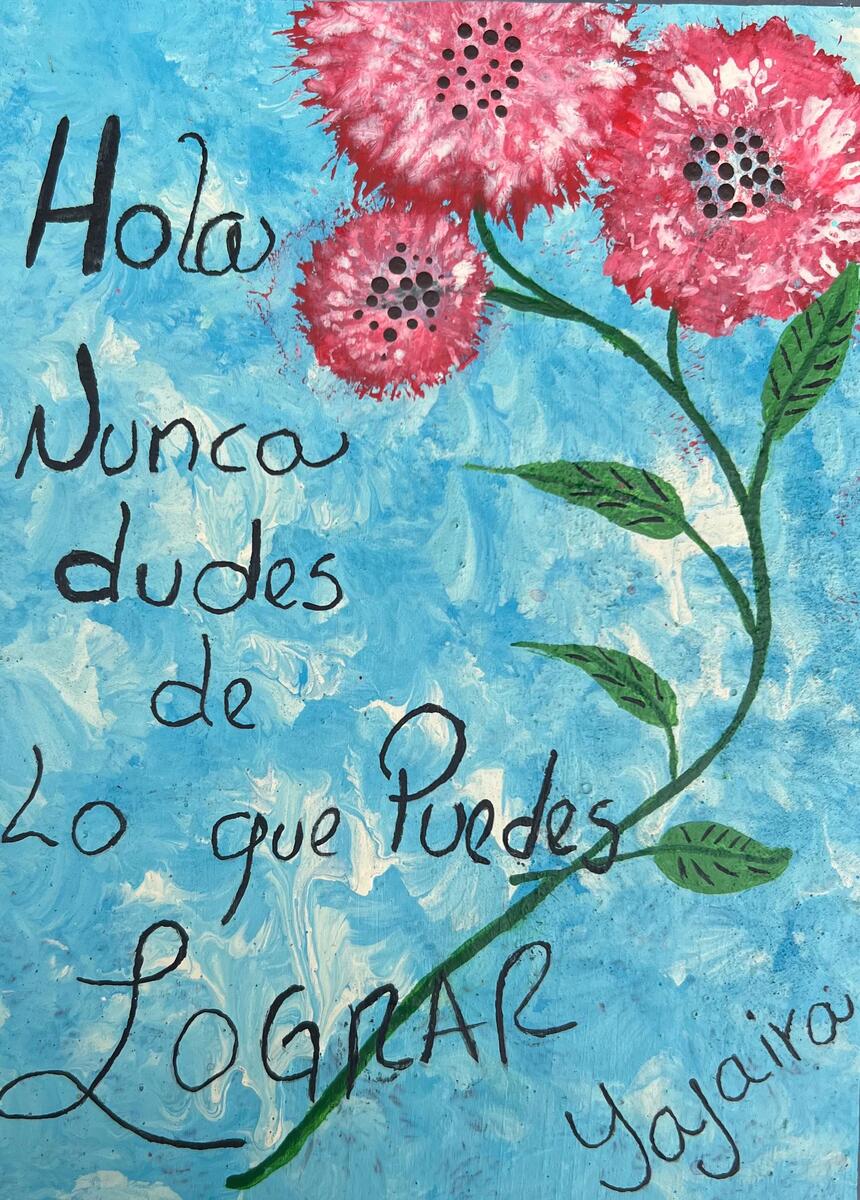 Hola
Nunca
dudes
de
Lo que Puedes
LOGRAR
Yajaira